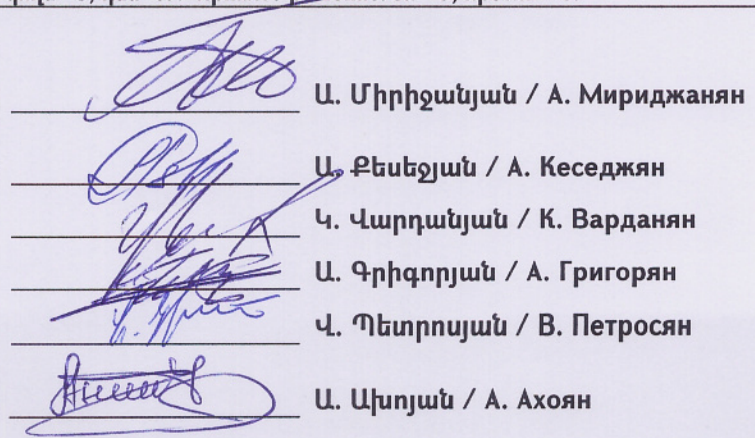 Ա. Միրիջանյան / А. Мириджанян
Ա. Քեսեջյան / А. Кеседжян
Կ. Վարդանյան / К. Варданян
Ա. Գրիգորյան / А. Григорян
Վ. Պետրոսյան / В. Петросян
Ա. Ախոյան / А. Ахоян